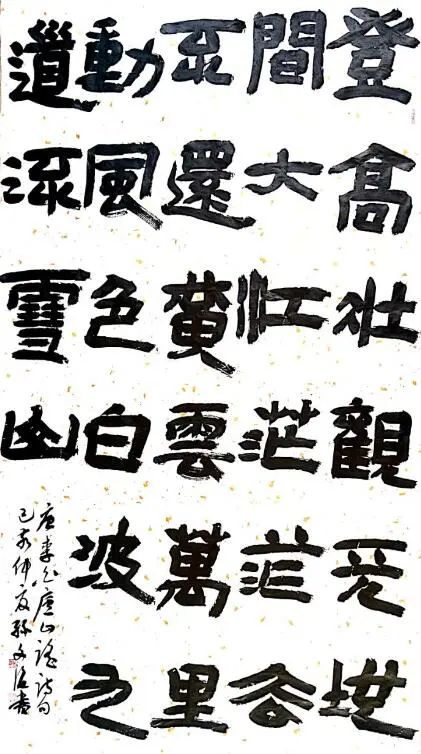 登高壯觀天地
間大江茫茫去
不還黄雲萬里
動風色白波九
道流雪山
唐李白廬山謡詩句
己亥仲夏孫文書